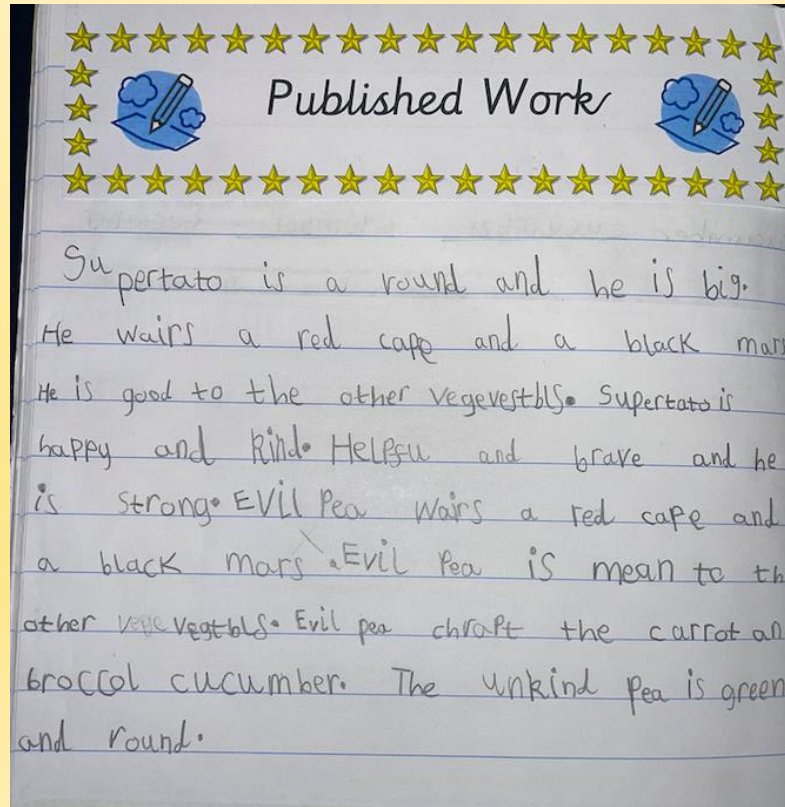 Published Work
Supertato is a round and he is big.
He wairs a red cape and a black mars
He is good to the other vegevestbls. Supertato is
happy and kind. Helpfu and brave and he
is strong. EVil Pea wairs a red cape and
a black mars. Evil Pea is mean to th
other vegtbls. Evil pea chrapt the carrot an
broccol cucumber. The unkind Pea is green
and round.